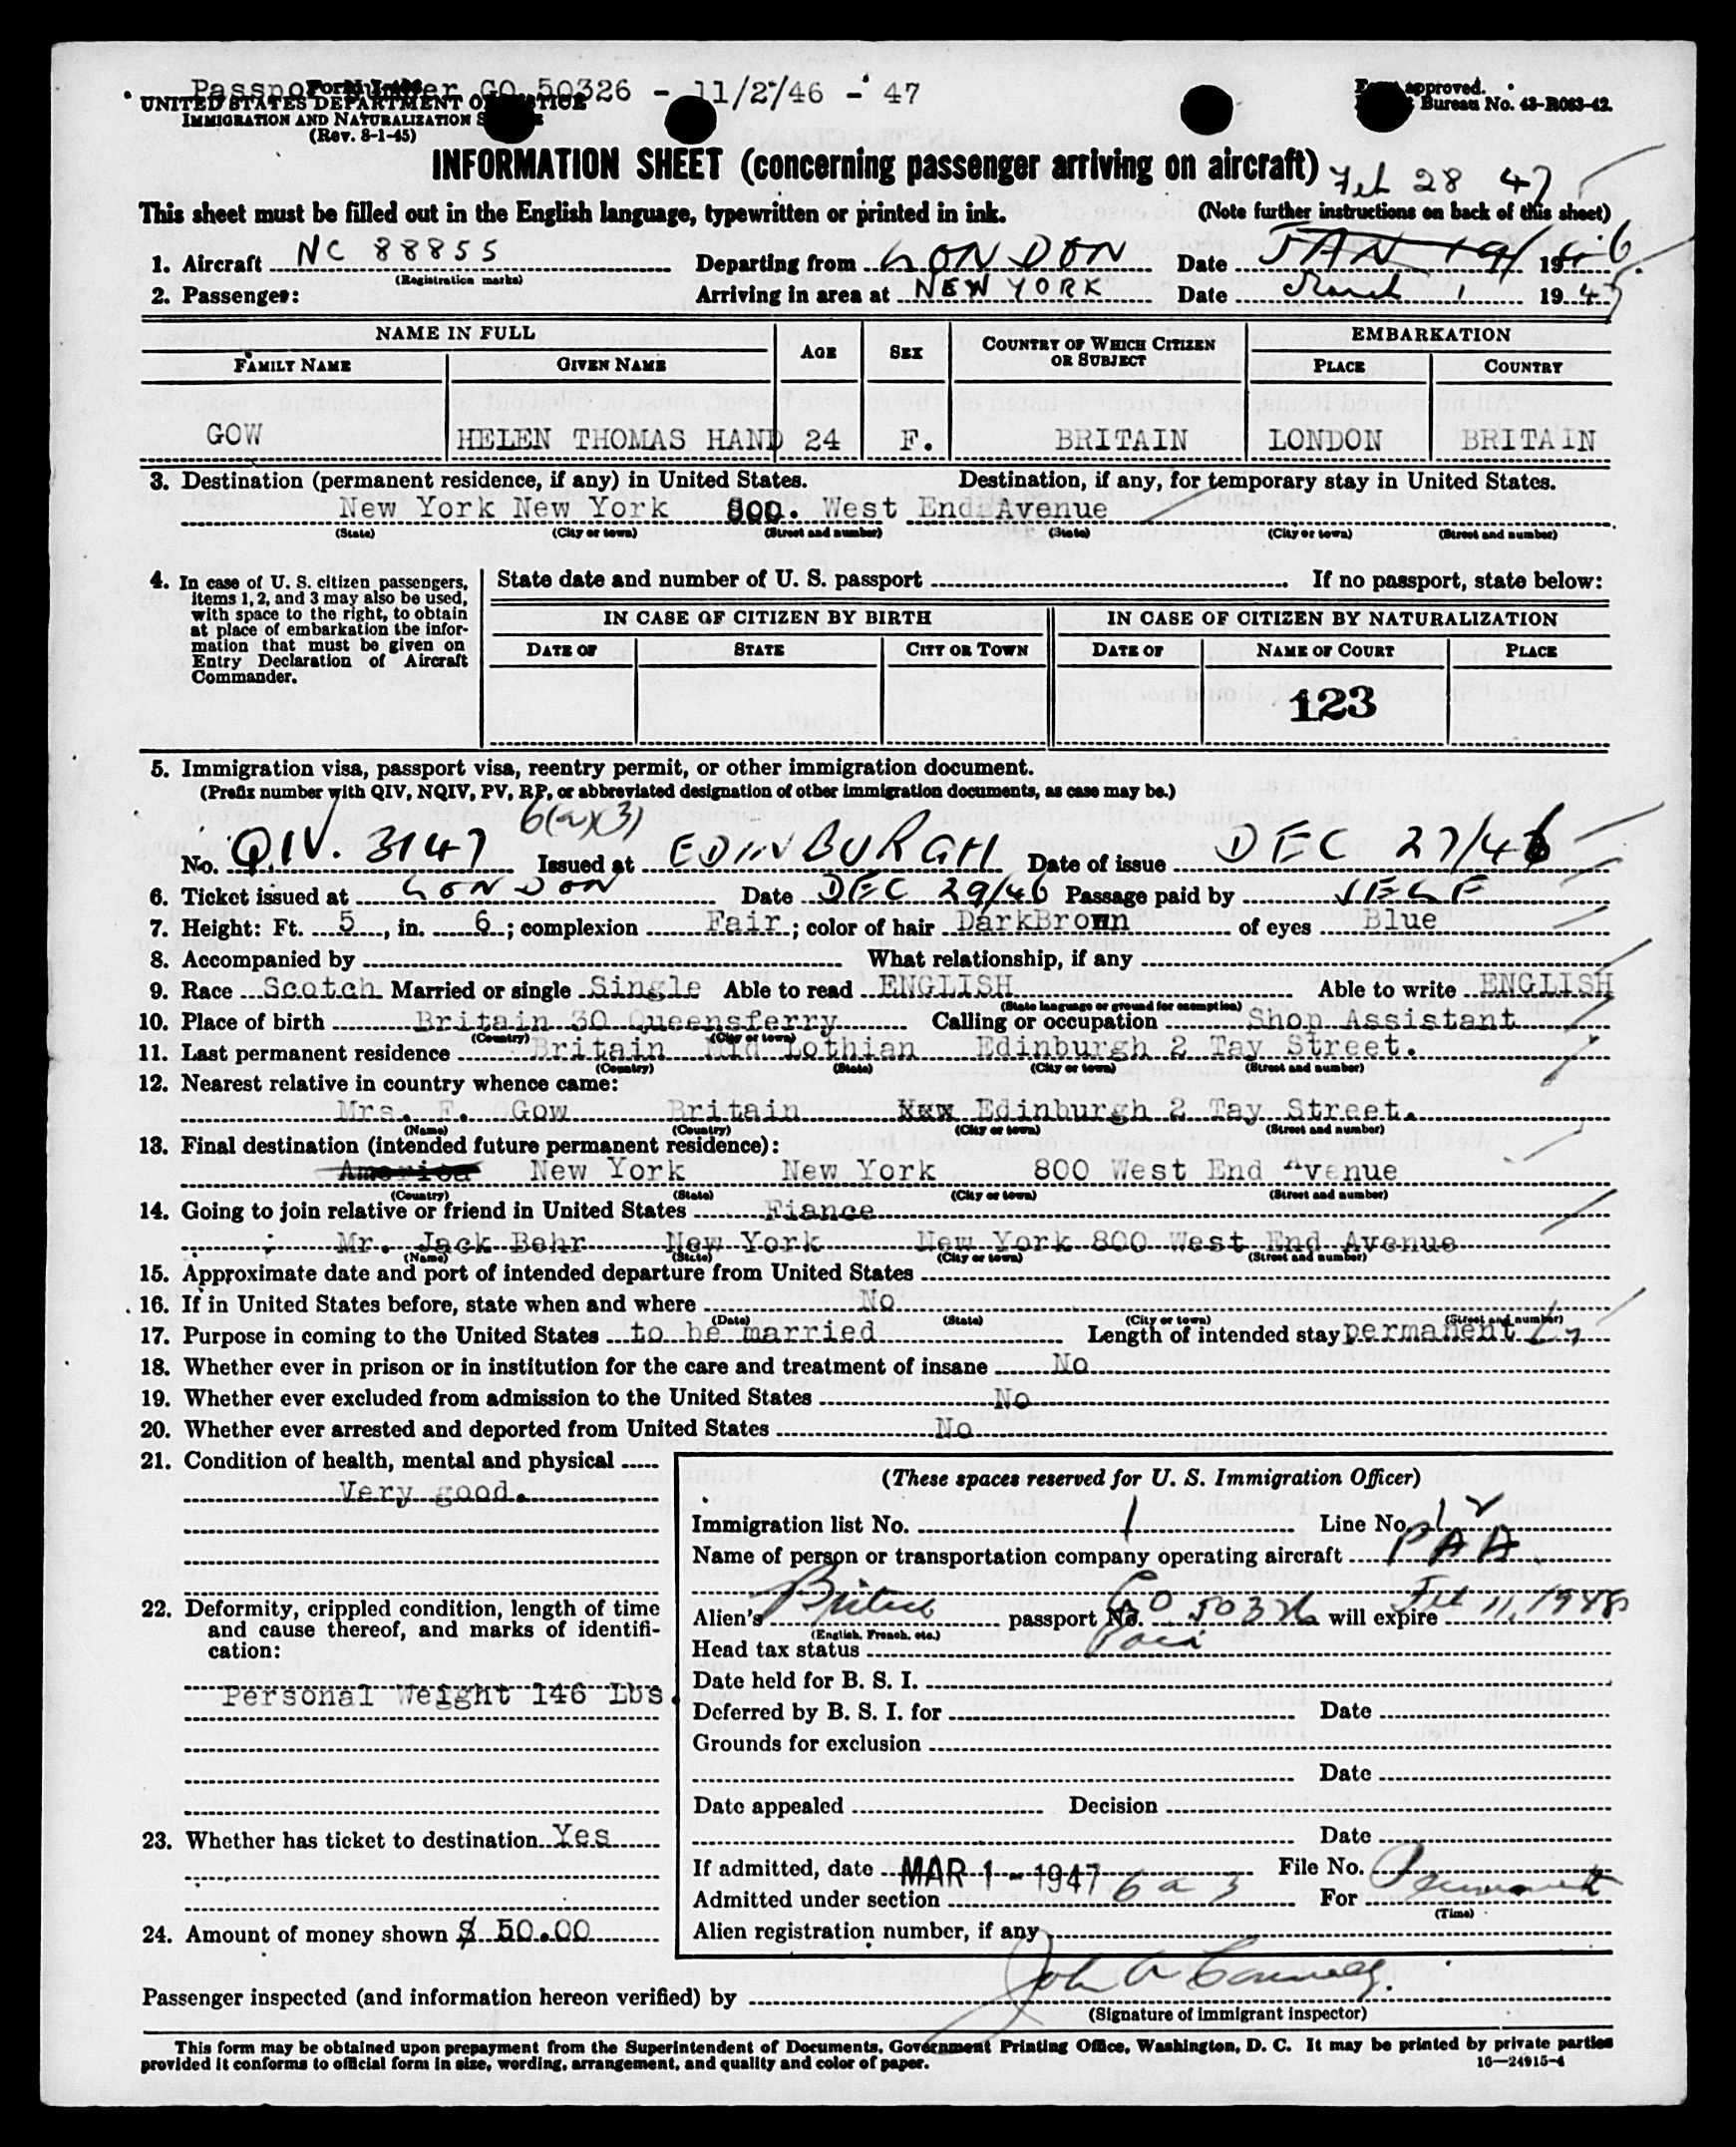 Passport Number GO 50326 - 11/2/46 - 47
UNITED STATES DEPARTMENT OF JUSTICE
IMMIGRATION AND NATURALIZATION
(Rev. 8-1-45)
approved.
Bureau No. 43-R063-42.
INFORMATION SHEET (concerning passenger arriving on aircraft)
Feb 28 47
This sheet must be filled out in the English language, typewritten or printed in ink. (Note further instructions on back of this sheet)
1. Aircraft NC 88855 Departing from LONDON Date JAN 19/ 19
(Registration marks)
2. Passenger: Arriving in area at NEW YORK Date March 1 1947
NAME IN FULL AGE SEX COUNTRY OF WHICH CITIZEN OR SUBJECT EMBARKATION
FAMILY NAME GIVEN NAME PLACE COUNTRY
GOW HELEN THOMAS HAND 24 F. BRITAIN LONDON BRITAIN
3. Destination (permanent residence, if any) in United States. Destination, if any, for temporary stay in United States.
New York New York 800. West End Avenue
(State) (City or town) (Street and number) (State) (City or town) (Street and number)
4. In case of U. S. citizen passengers, items 1, 2, and 3 may also be used, with space to the right, to obtain at place of embarkation the information that must be given on Entry Declaration of Aircraft Commander.
State date and number of U. S. passport If no passport, state below:
IN CASE OF CITIZEN BY BIRTH IN CASE OF CITIZEN BY NATURALIZATION
DATE OF STATE CITY OR TOWN DATE OF NAME OF COURT PLACE
123
5. Immigration visa, passport visa, reentry permit, or other immigration document.
(Prefix number with QIV, NQIV, PV, RP, or abbreviated designation of other immigration documents, as case may be.)
6(a)(3)
No. QIV. 3147 Issued at EDINBURGH Date of issue DEC 27/46
6. Ticket issued at LONDON Date DEC 29/46 Passage paid by SELF
7. Height: Ft. 5, in. 6; complexion Fair; color of hair DarkBrown of eyes Blue
8. Accompanied by What relationship, if any
9. Race Scotch Married or single Single Able to read ENGLISH Able to write ENGLISH
(State language or ground for exemption)
10. Place of birth Britain 30 Queensferry Calling or occupation Shop Assistant
(Country) (City or town)
11. Last permanent residence Britain Mid Lothian Edinburgh 2 Tay Street.
(Country) (State) (City or town) (Street and number)
12. Nearest relative in country whence came:
Mrs. F. Gow Britain Edinburgh 2 Tay Street.
(Name) (Country) (City or town) (Street and number)
13. Final destination (intended future permanent residence):
America New York New York 800 West End Avenue
(Country) (State) (City or town) (Street and number)
14. Going to join relative or friend in United States Fiance
Mr. Jack Behr New York New York 800 West End Avenue
(Name) (State) (City or town) (Street and number)
15. Approximate date and port of intended departure from United States
16. If in United States before, state when and where No
(Date) (State) (City or town) (Street and number)
17. Purpose in coming to the United States to be married Length of intended stay permanent
18. Whether ever in prison or in institution for the care and treatment of insane No
19. Whether ever excluded from admission to the United States No
20. Whether ever arrested and deported from United States No
21. Condition of health, mental and physical
Very good.
22. Deformity, crippled condition, length of time and cause thereof, and marks of identification:
Personal Weight 146 Lbs.
23. Whether has ticket to destination Yes
24. Amount of money shown $ 50.00
(These spaces reserved for U. S. Immigration Officer)
Immigration list No. 1 Line No. 12
Name of person or transportation company operating aircraft PAA
Alien's British passport No. GO 50326 will expire Feb 11, 1948
(English, French, etc.)
Head tax status Paid
Date held for B. S. I.
Deferred by B. S. I. for Date
Grounds for exclusion
Date
Date appealed Decision
Date
If admitted, date MAR 1 - 1947 File No.
Admitted under section 6 a 3 For Permanent
(Time)
Alien registration number, if any
Passenger inspected (and information hereon verified) by John A Connelly.
(Signature of immigrant inspector)
This form may be obtained upon prepayment from the Superintendent of Documents, Government Printing Office, Washington, D. C. It may be printed by private parties
provided it conforms to official form in size, wording, arrangement, and quality and color of paper. 16—24915-4